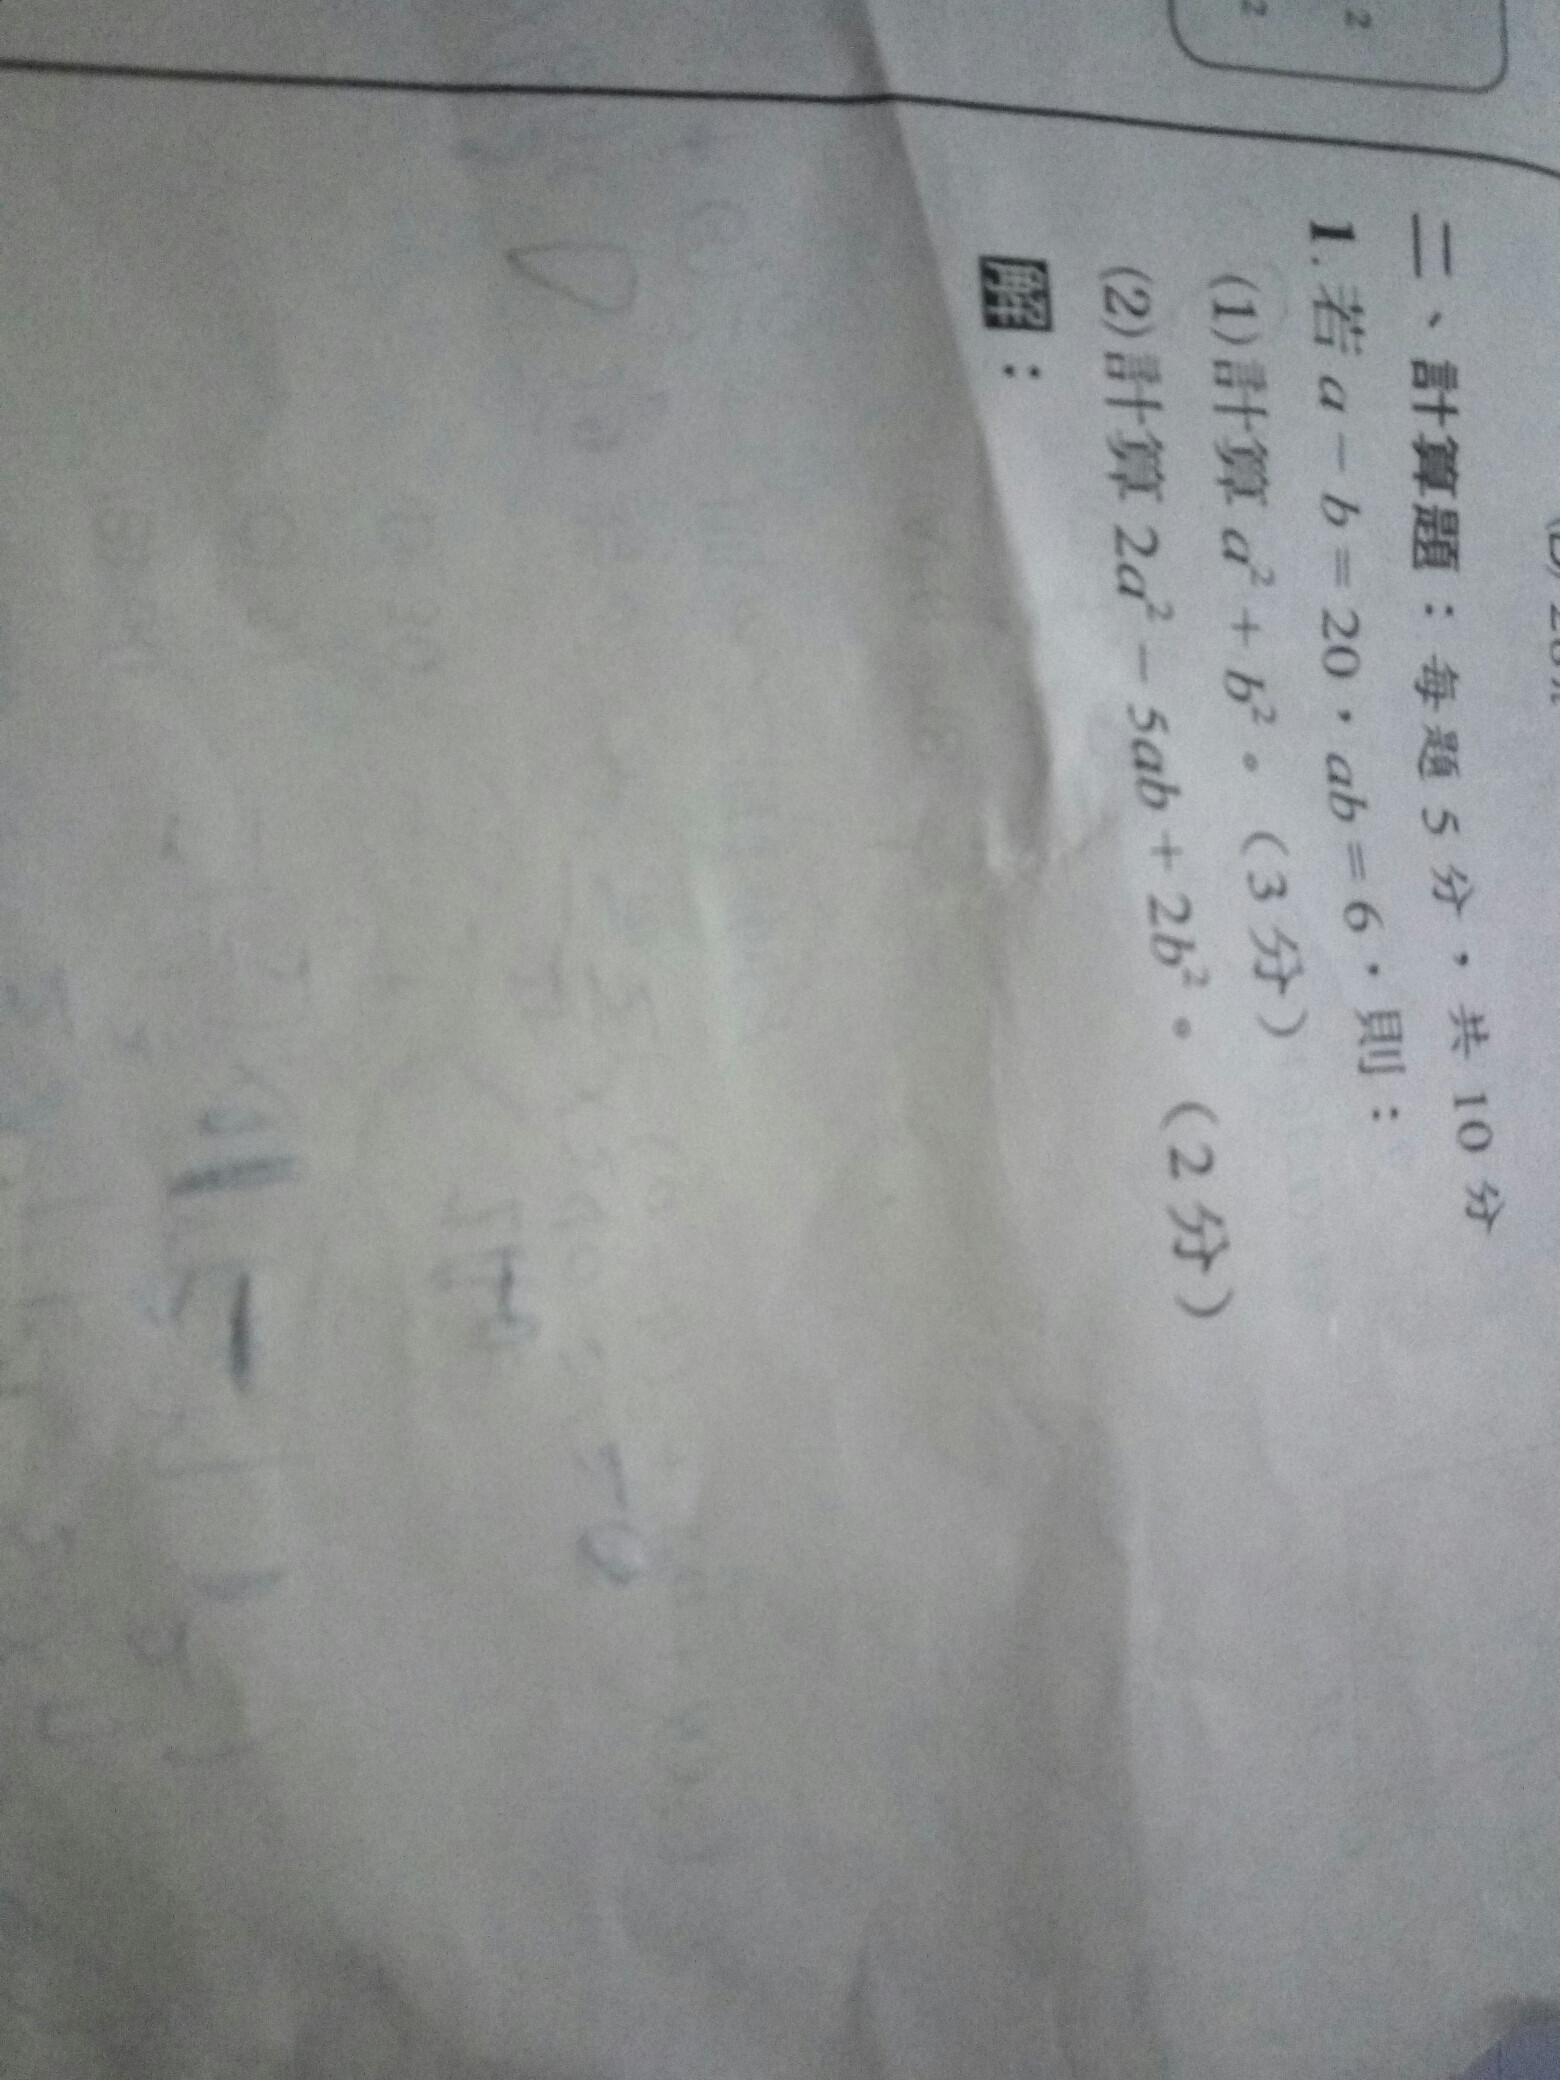 二、計算題：每題 5 分，共 10 分
1. 若 a − b = 20，ab = 6，則：
(1) 計算 a² + b²。（3 分）
(2) 計算 2a² − 5ab + 2b²。（2 分）
解：